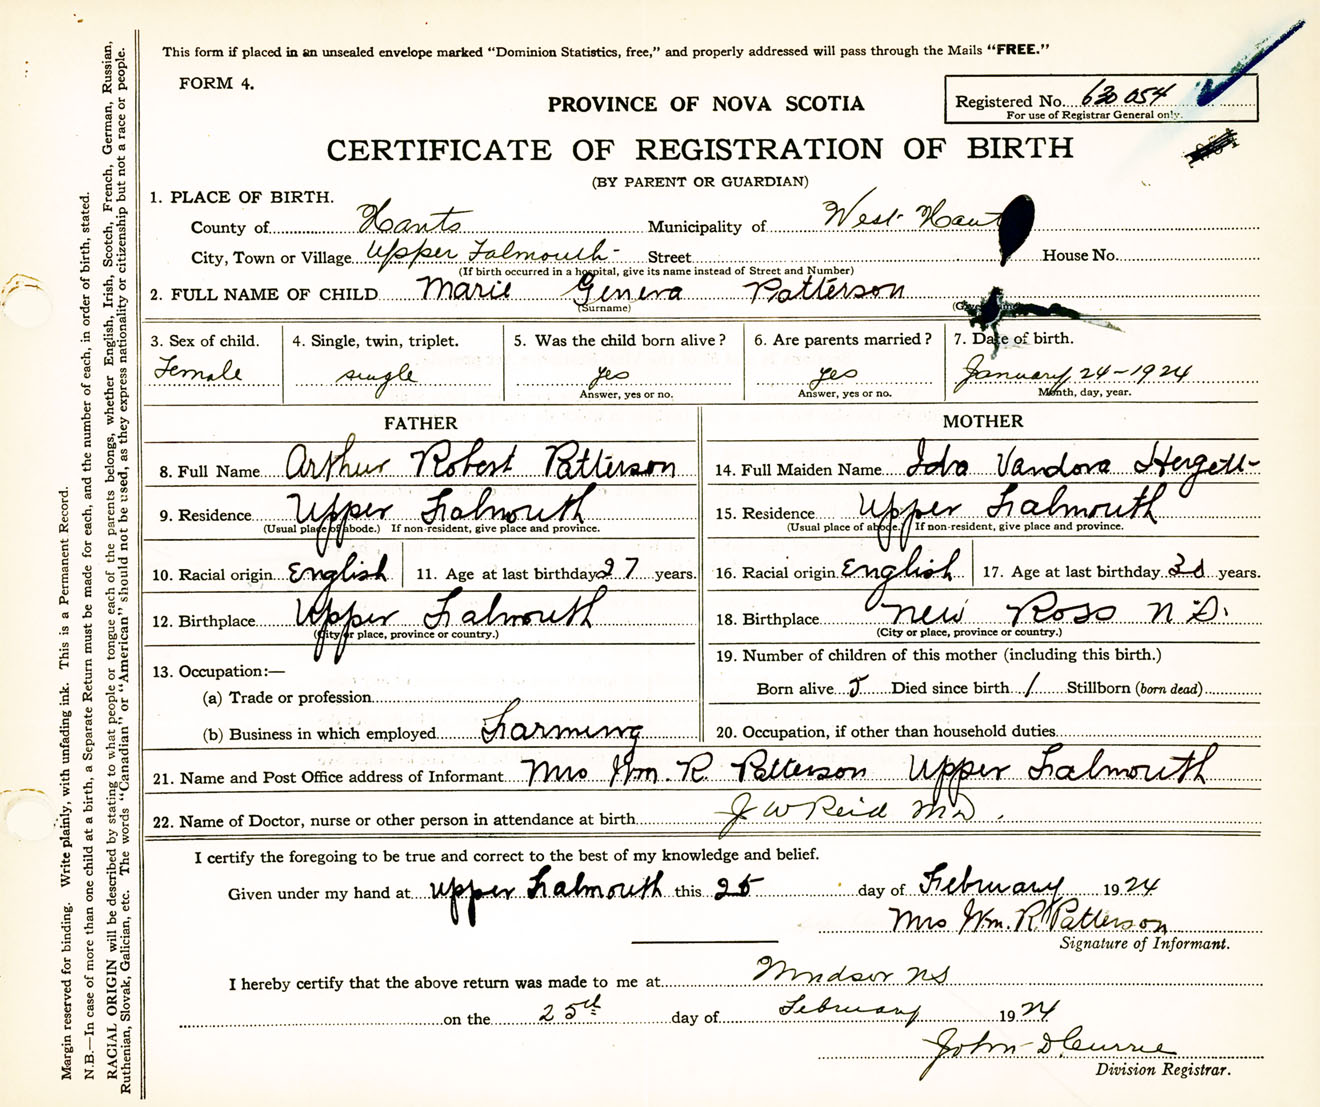 This form if placed in an unsealed envelope marked "Dominion Statistics, free," and properly addressed will pass through the Mails "FREE."
FORM 4.
Registered No. 630 054
For use of Registrar General only.
PROVINCE OF NOVA SCOTIA
CERTIFICATE OF REGISTRATION OF BIRTH
(BY PARENT OR GUARDIAN)
1. PLACE OF BIRTH.
County of Hants Municipality of West Hant
City, Town or Village Upper Falmouth Street House No.
(If birth occurred in a hospital, give its name instead of Street and Number)
2. FULL NAME OF CHILD Marie Geneva Patterson
(Surname)
3. Sex of child. 4. Single, twin, triplet. 5. Was the child born alive? 6. Are parents married? 7. Date of birth.
Female single yes yes January 24-1924
Answer, yes or no. Answer, yes or no. Month, day, year.
FATHER MOTHER
8. Full Name Arthur Robert Patterson 14. Full Maiden Name Ida Vandora Hergett
9. Residence Upper Falmouth 15. Residence Upper Falmouth
(Usual place of abode.) If non-resident, give place and province. (Usual place of abode.) If non-resident, give place and province.
10. Racial origin English 11. Age at last birthday 27 years. 16. Racial origin English 17. Age at last birthday years.
12. Birthplace Upper Falmouth 18. Birthplace New Ross N.S.
(City or place, province or country.) (City or place, province or country.)
13. Occupation:— 19. Number of children of this mother (including this birth.)
(a) Trade or profession Born alive 5 Died since birth 1 Stillborn (born dead)
(b) Business in which employed Farming 20. Occupation, if other than household duties
21. Name and Post Office address of Informant Mrs Wm. R. Patterson Upper Falmouth
22. Name of Doctor, nurse or other person in attendance at birth J W Reid MD.
I certify the foregoing to be true and correct to the best of my knowledge and belief.
Given under my hand at Upper Falmouth this 25 day of February 1924
Mrs Wm. R. Patterson
Signature of Informant.
I hereby certify that the above return was made to me at Windsor NS
on the 25th day of February 1924
John D Currie
Division Registrar.
Margin reserved for binding. Write plainly, with unfading ink. This is a Permanent Record.
N.B.—In case of more than one child at a birth, a Separate Return must be made for each, and the number of each, in order of birth, stated.
RACIAL ORIGIN will be described by stating to what people or tongue each of the parents belongs, whether English, Irish, Scotch, French, German, Russian,
Ruthenian, Slovak, Galician, etc. The words "Canadian" or "American" should not be used, as they express nationality or citizenship but not a race or people.